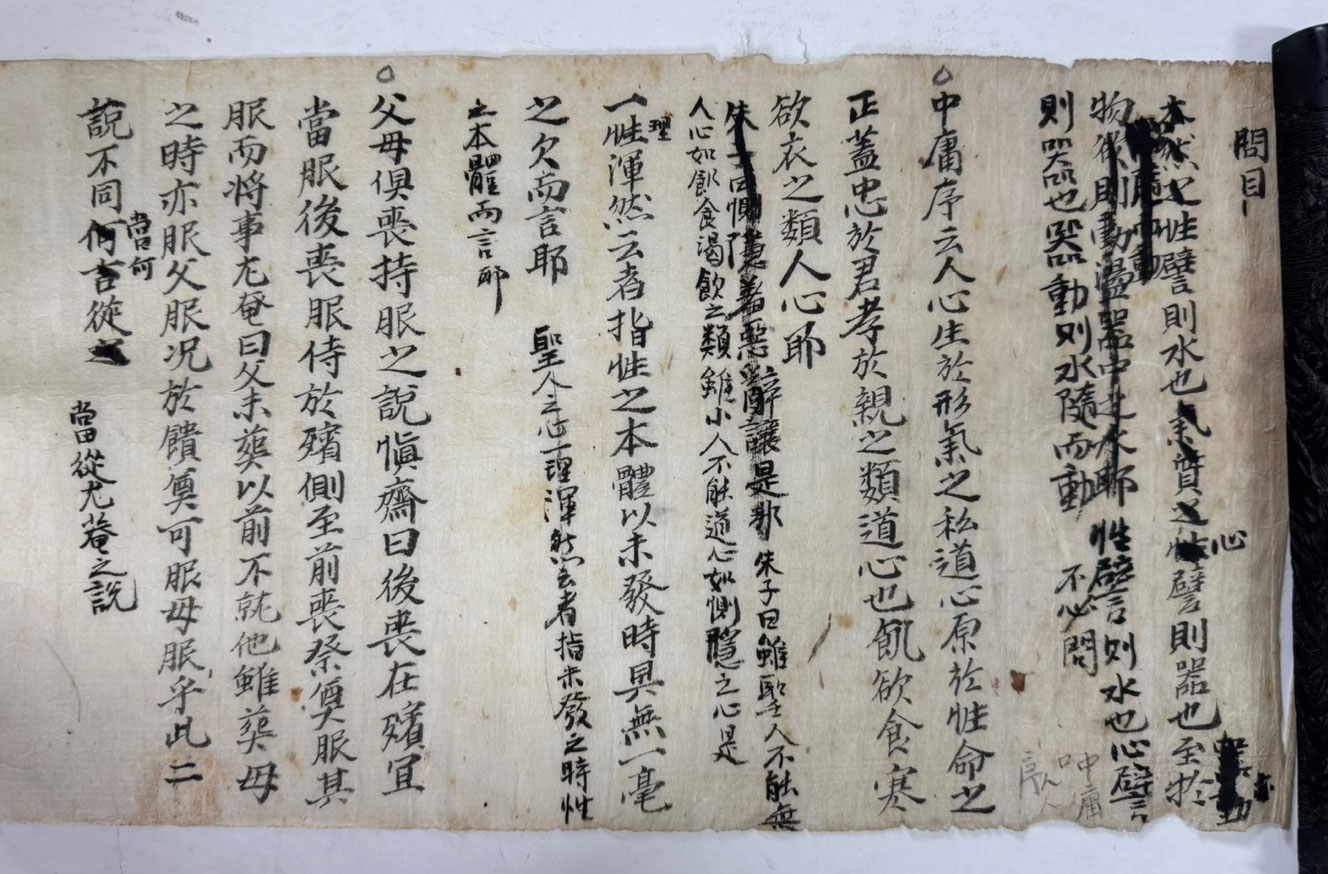 問目
本然之性譬則水也氣質之性譬則器也至於
心
物欲則動盪器中之水耶 性譬則水也心譬
則器也器動則水隨而動 不必問
中庸序云人心生於形氣之私道心原於性命之
正盖忠於君孝於親之類道心也飢欲食寒
欲衣之類人心耶
朱子曰惻隱羞惡辭讓是耶 朱子曰雖聖人不能無
人心如飢食渴飮之類雖小人不能道心如惻隱之心是
一性渾然云者指性之本體以未發時具無一毫
理
之欠而言耶 聖人之心一理渾然云者指未發之時性
之本體而言耶
父母俱喪持服之說愼齋曰後喪在殯宜
當服後喪服侍於殯側至前喪祭奠服其
服而將事尤菴曰父未葬以前不就他雖葬母
之時亦服父服况於饋奠可服母服乎此二
說不同何言從之
當何
當從尤菴之說